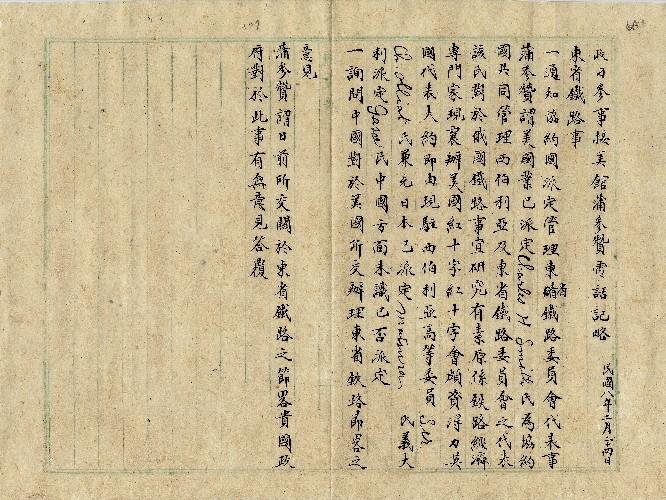 政日參事接美館蒲參贊電話記略
民國八年二月二十四日
東省鐵路事
一須知協約國派定管理東省鐵路委員會代表事
蒲參贊謂美國業已派定Charles H Smith氏為協約
國共同管理西伯利亞及東省鐵路委員會之代表
該氏對於俄國鐵路事宜研究有素原係鐵路經濟
專門家現襄辦美國紅十字紅十字會頗資得力英
國代表大約即由現駐西伯利亞高等委員
氏兼充日本已派定Matsudaira氏義大
利派定 氏中國方面未識已否派定
一詢問中國對於美國所交辦理東省鐵路節略之
意見
蒲參贊謂日前所交關於東省鐵路之節略貴國政
府對於此事有無意見答覆